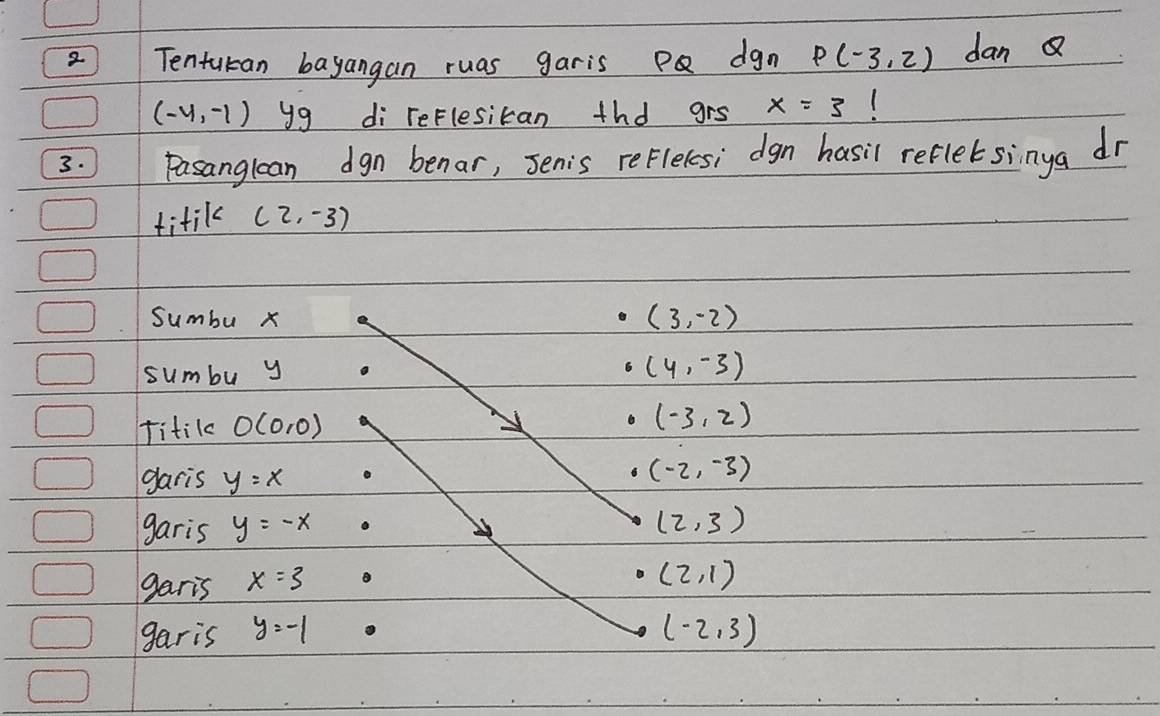 2 Tentukan bayangan ruas garis PQ dgn P(-3,2) dan Q
(-4,-1) yg di reflesikan thd grs x = 3 !
3. Pasangkan dgn benar, Jenis refleksi dgn hasil refleksinya dr
titik (2,-3)
Sumbu x • • (3,-2)
sumbu y • • (4,-3)
Titik O(0,0) • • (-3,2)
garis y=x • • (-2,-3)
garis y = -x • • (2,3)
garis x=3 • • (2,1)
garis y=-1 • • (-2,3)